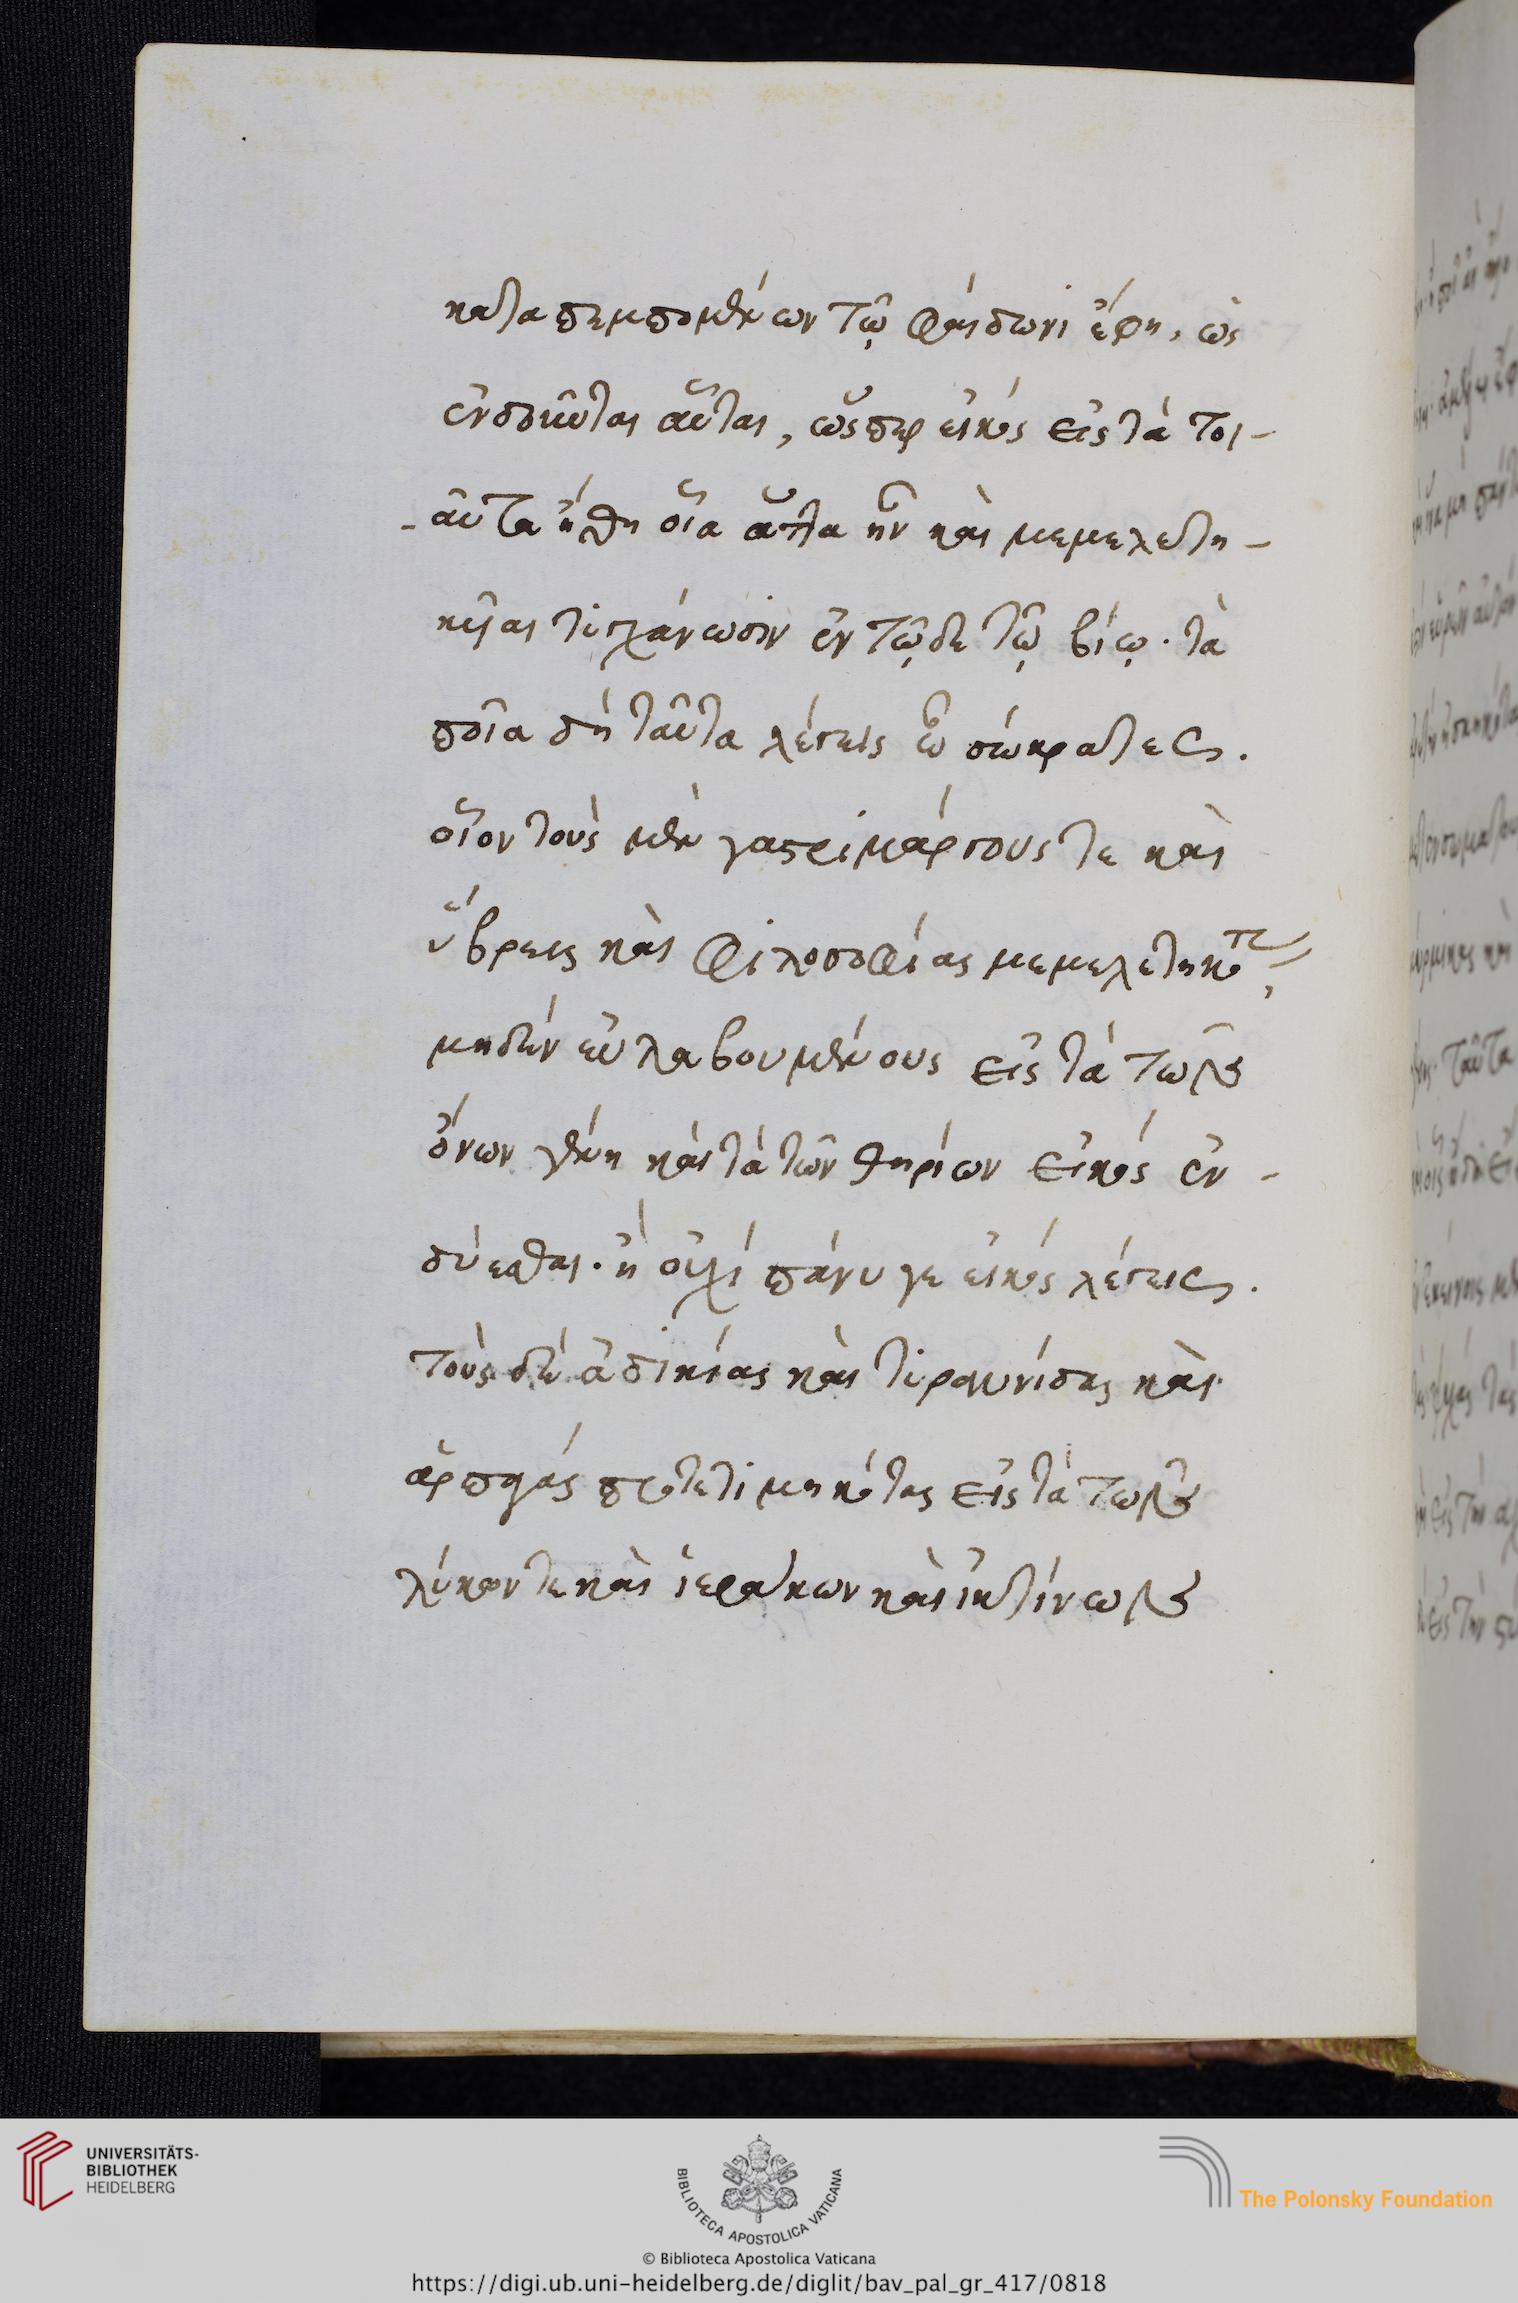 καταπεμπομένων τῷ φαίδωνι ἔφη, ὡς
ἐνδοῦνται αὗται, ὥσπερ εἰκός εἰς τὰ τοι-
-αῦτα ἤθη οἷα ἅττα ἦν καὶ μεμελετη-
κῦιαι τυγχάνωσιν ἐν τῷδε τῷ βίῳ. τὰ
ποῖα δὴ ταῦτα λέγεις ὦ σώκρατες.
οἷον τοὺς μὲν γαστριμάργους τε καὶ
ὕβρεις καὶ φιλοποσίας μεμελετηκότας,
μηδὲν εὐλαβουμένους εἰς τὰ τῶν
ὄνων γένη καὶ τὰ τῶν θηρίων εἰκός ἐν-
δύεσθαι. ἢ οὐχί πάνυ γε εἰκός λέγεις.
τοὺς δέ ἀδικίας καὶ τυραννίδας καὶ
ἁρπαγάς προτετιμηκότας εἰς τὰ τῶν
λύκων τε καὶ ἱεράκων καὶ ἰκτίνων
UNIVERSITÄTS-
BIBLIOTHEK
HEIDELBERG
BIBLIOTECA APOSTOLICA VATICANA
The Polonsky Foundation
© Biblioteca Apostolica Vaticana
https://digi.ub.uni-heidelberg.de/diglit/bav_pal_gr_417/0818